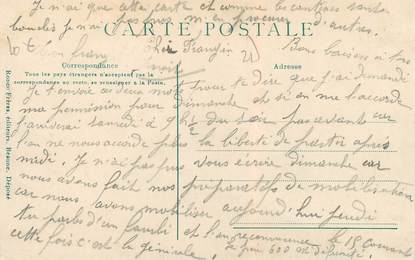 Je n'ai que cette carte et comme les cantines sont
bouclés je n'ai pas pu m'en procurer d'autres.
CARTE POSTALE
Cher Frangin
Bons baisers à tous
Correspondance
Tous les pays étrangers n'acceptent pas la
correspondance au recto, se renseigner à la Poste.
Adresse
Je t'envoie ces deux mots pour te dire que j'ai demandé
ma permission pour dimanche et si on me l'accorde
j'arriverai samedi à 9h½ du soir pas avant car
l'on ne nous accorde plus la liberté de partir après
midi. Je n'ai pas pu vous écrire dimanche car
nous avons fait nos préparatifs de mobilisation
car nous avons mobiliser aujourd'hui jeudi
tu parles d'un et l'on recommence le 18 courant
cette fois c'est la générale,
Ronco Frères, éditeurs, Beaune, Déposé